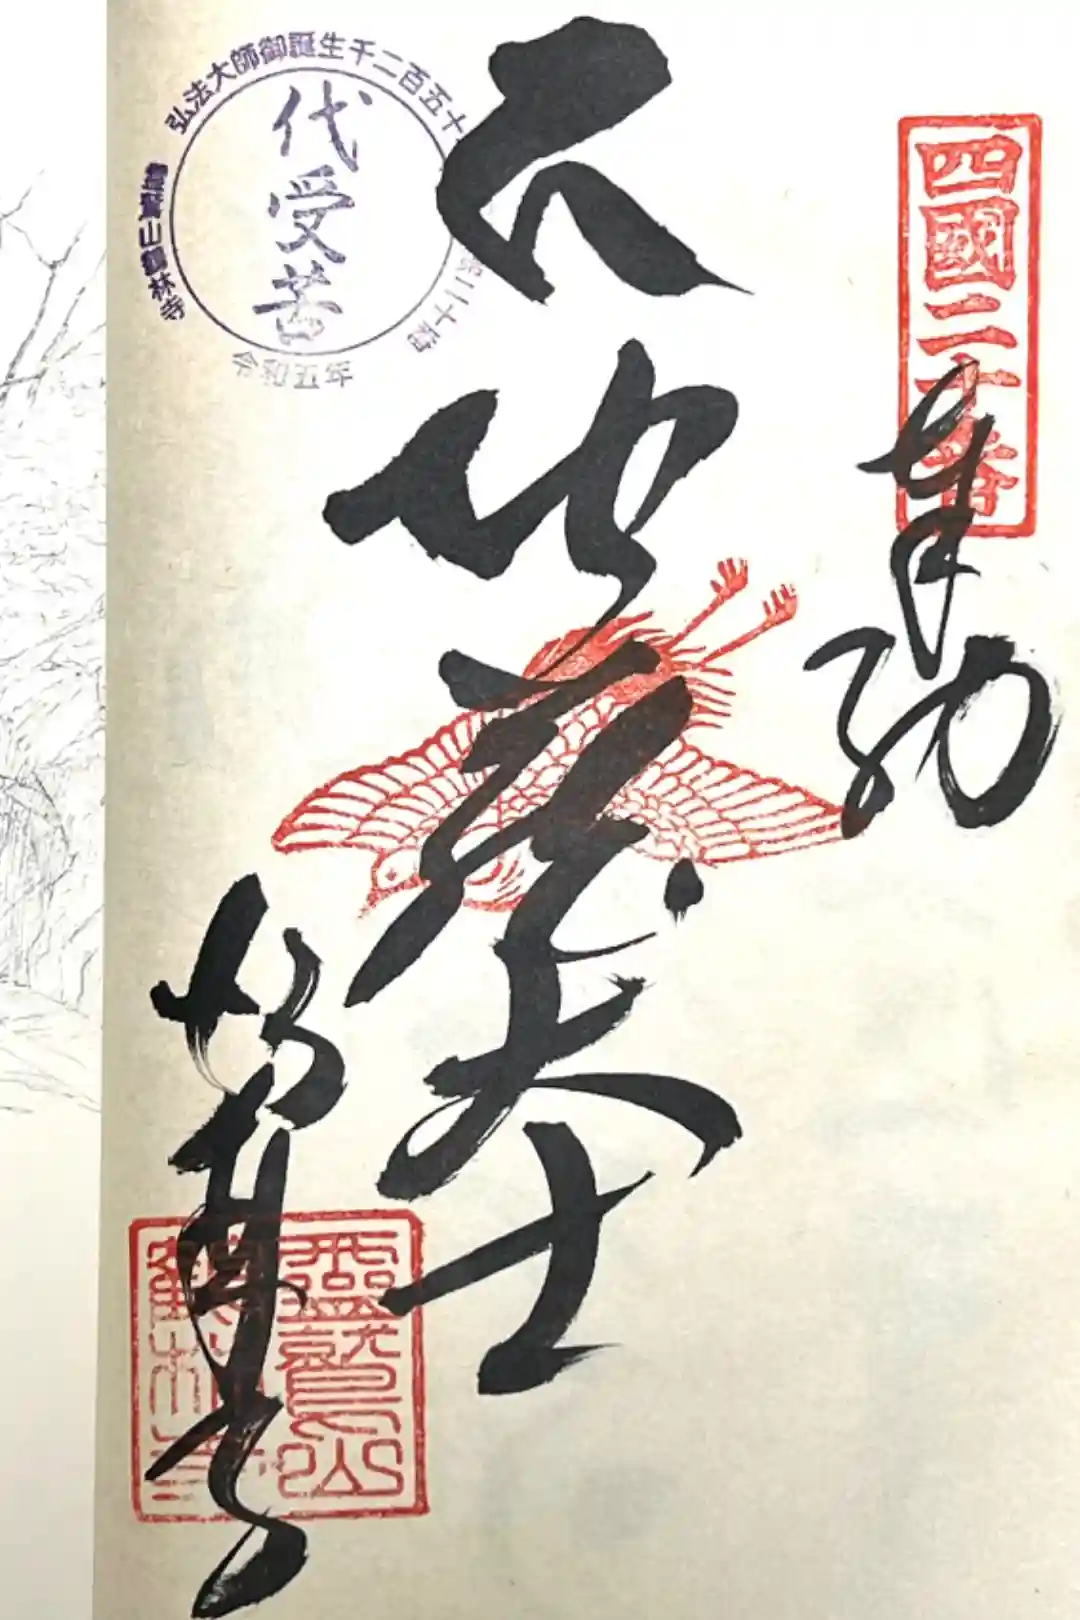 四國二十番
奉納
地蔵大士
鶴林寺
弘法大師御誕生千二百五十
代受苦
靈鷲山鶴林寺
二十番
靈鷲山
鶴林寺